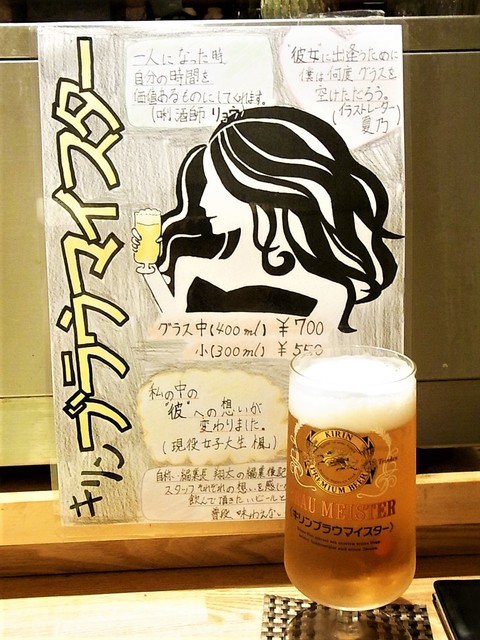 キリンブラウマイスター
一人になった時
自分の時間を
価値あるものにしてくれます。
(唎酒師 りょう)
"彼女"に出逢うために
僕は何度グラスを
空けただろう。
(イラストレーター
夏乃)
グラス中(400ml) ¥700
小(300ml) ¥550
私の中の
"彼"への想いが
変わりました。
(現役女子大生 楓)
自称・編集長 翔太の編集後記
スタッフそれぞれの想いを感じ
飲んで頂きたいビールと
普段 味わえない
KIRIN
PREMIUM BEER
BRAU MEISTER
キリンブラウマイスター